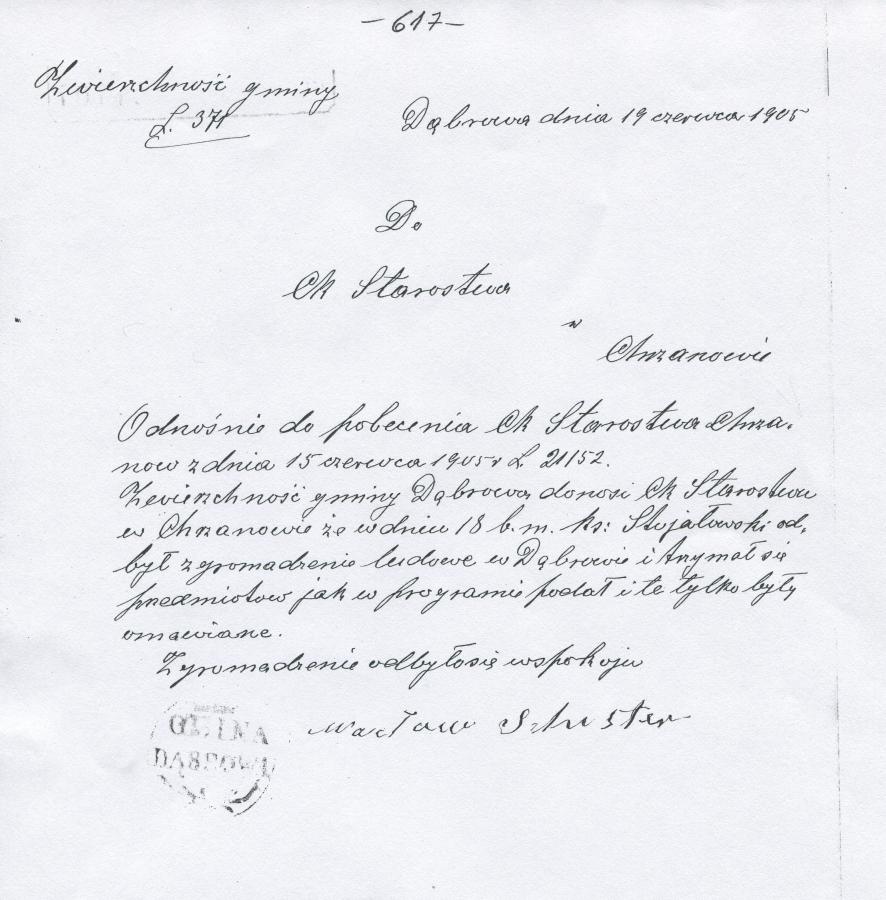 — 617 —
Zwierzchność gminy
L. 371
Dąbrowa dnia 19 czerwca 1905
Do
Ck Starostwa
w
Chrzanowie
Odnośnie do polecenia Ck Starostwa Chrza-
now z dnia 15 czerwca 1905 r L. 21152.
Zwierzchność gminy Dąbrowa donosi Ck Starostwu
w Chrzanowie że w dniu 18 b. m. ks: Stojałowski od-
był zgromadzenie ludowe w Dąbrowie i trzymał się
przedmiotow jak w programie podał i te tylko były
omawiane.
Zgromadzenie odbyło się w spokoju
Wacław
GMINA
DĄBROWA